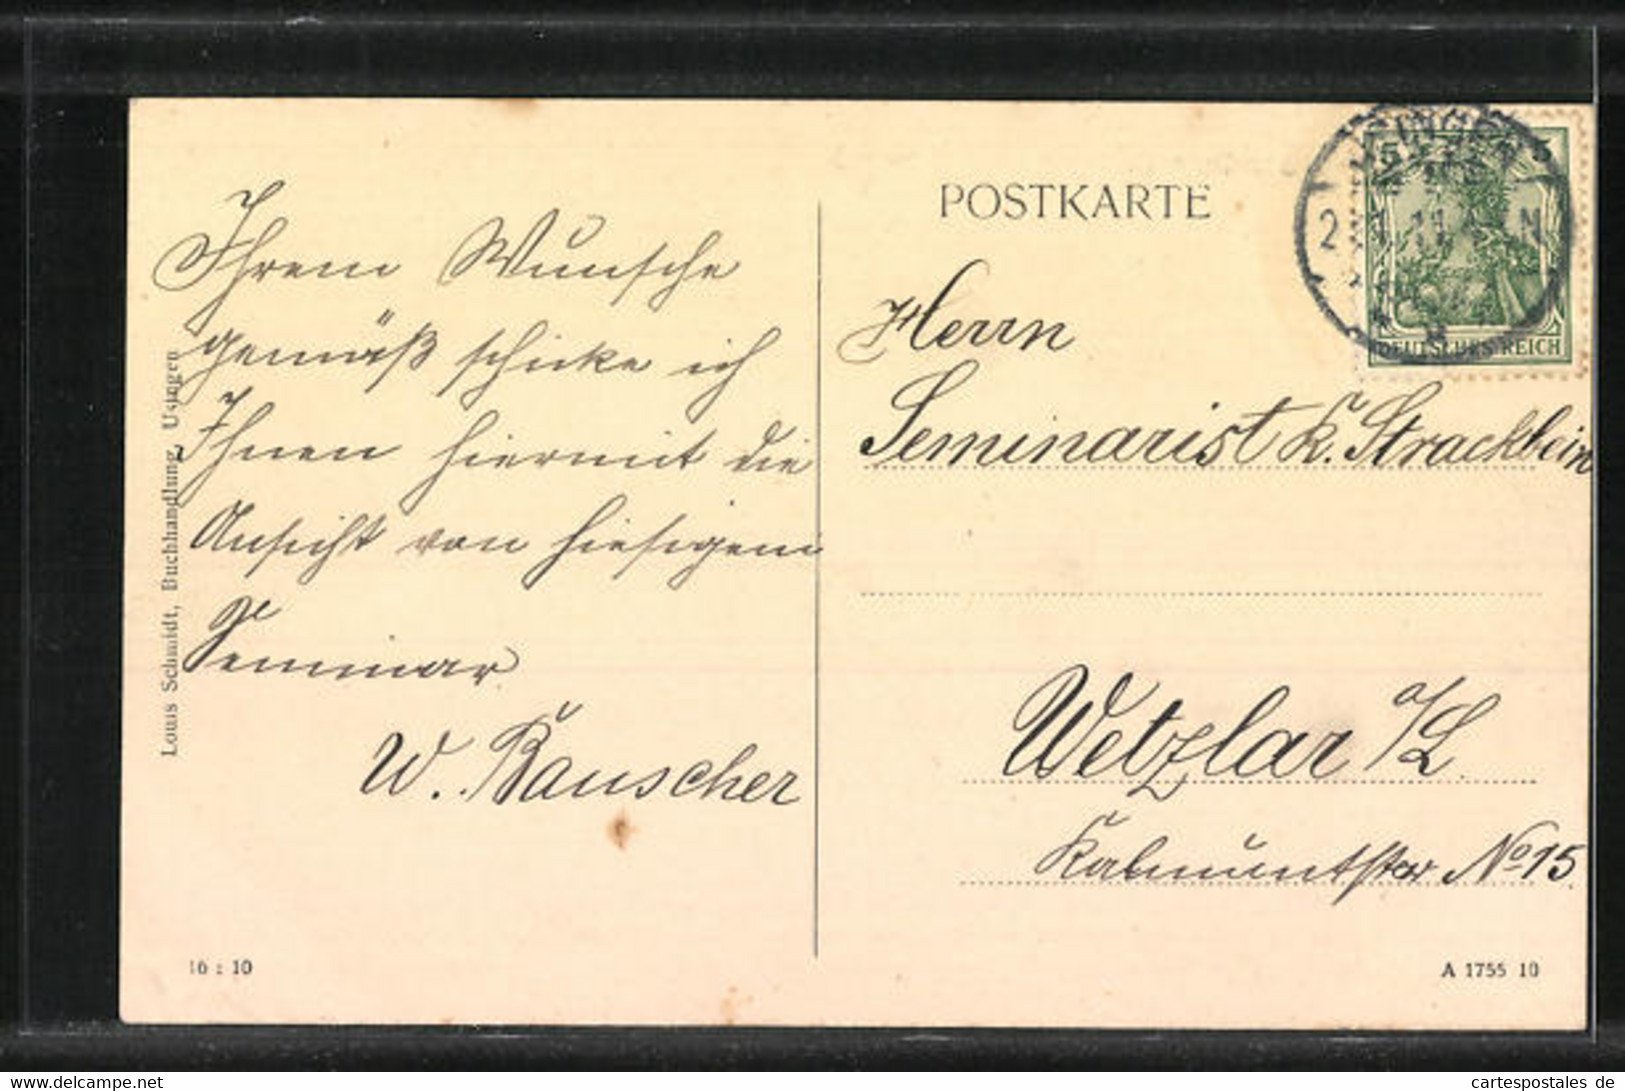 Ihrem Wunsche
gemäß schicke ich
Ihnen hiermit die
Ansicht von hiesigem
Seminar
W. Bauscher
Louis Schmidt, Buchhandlung, Usingen
16 : 10
POSTKARTE
5 5
DEUTSCHES REICH
Herrn
Seminarist K. Strackbein
Wetzlar a/L.
Kalsmuntstr No 15.
A 1755 10
www.delcampe.net
cartespostales de